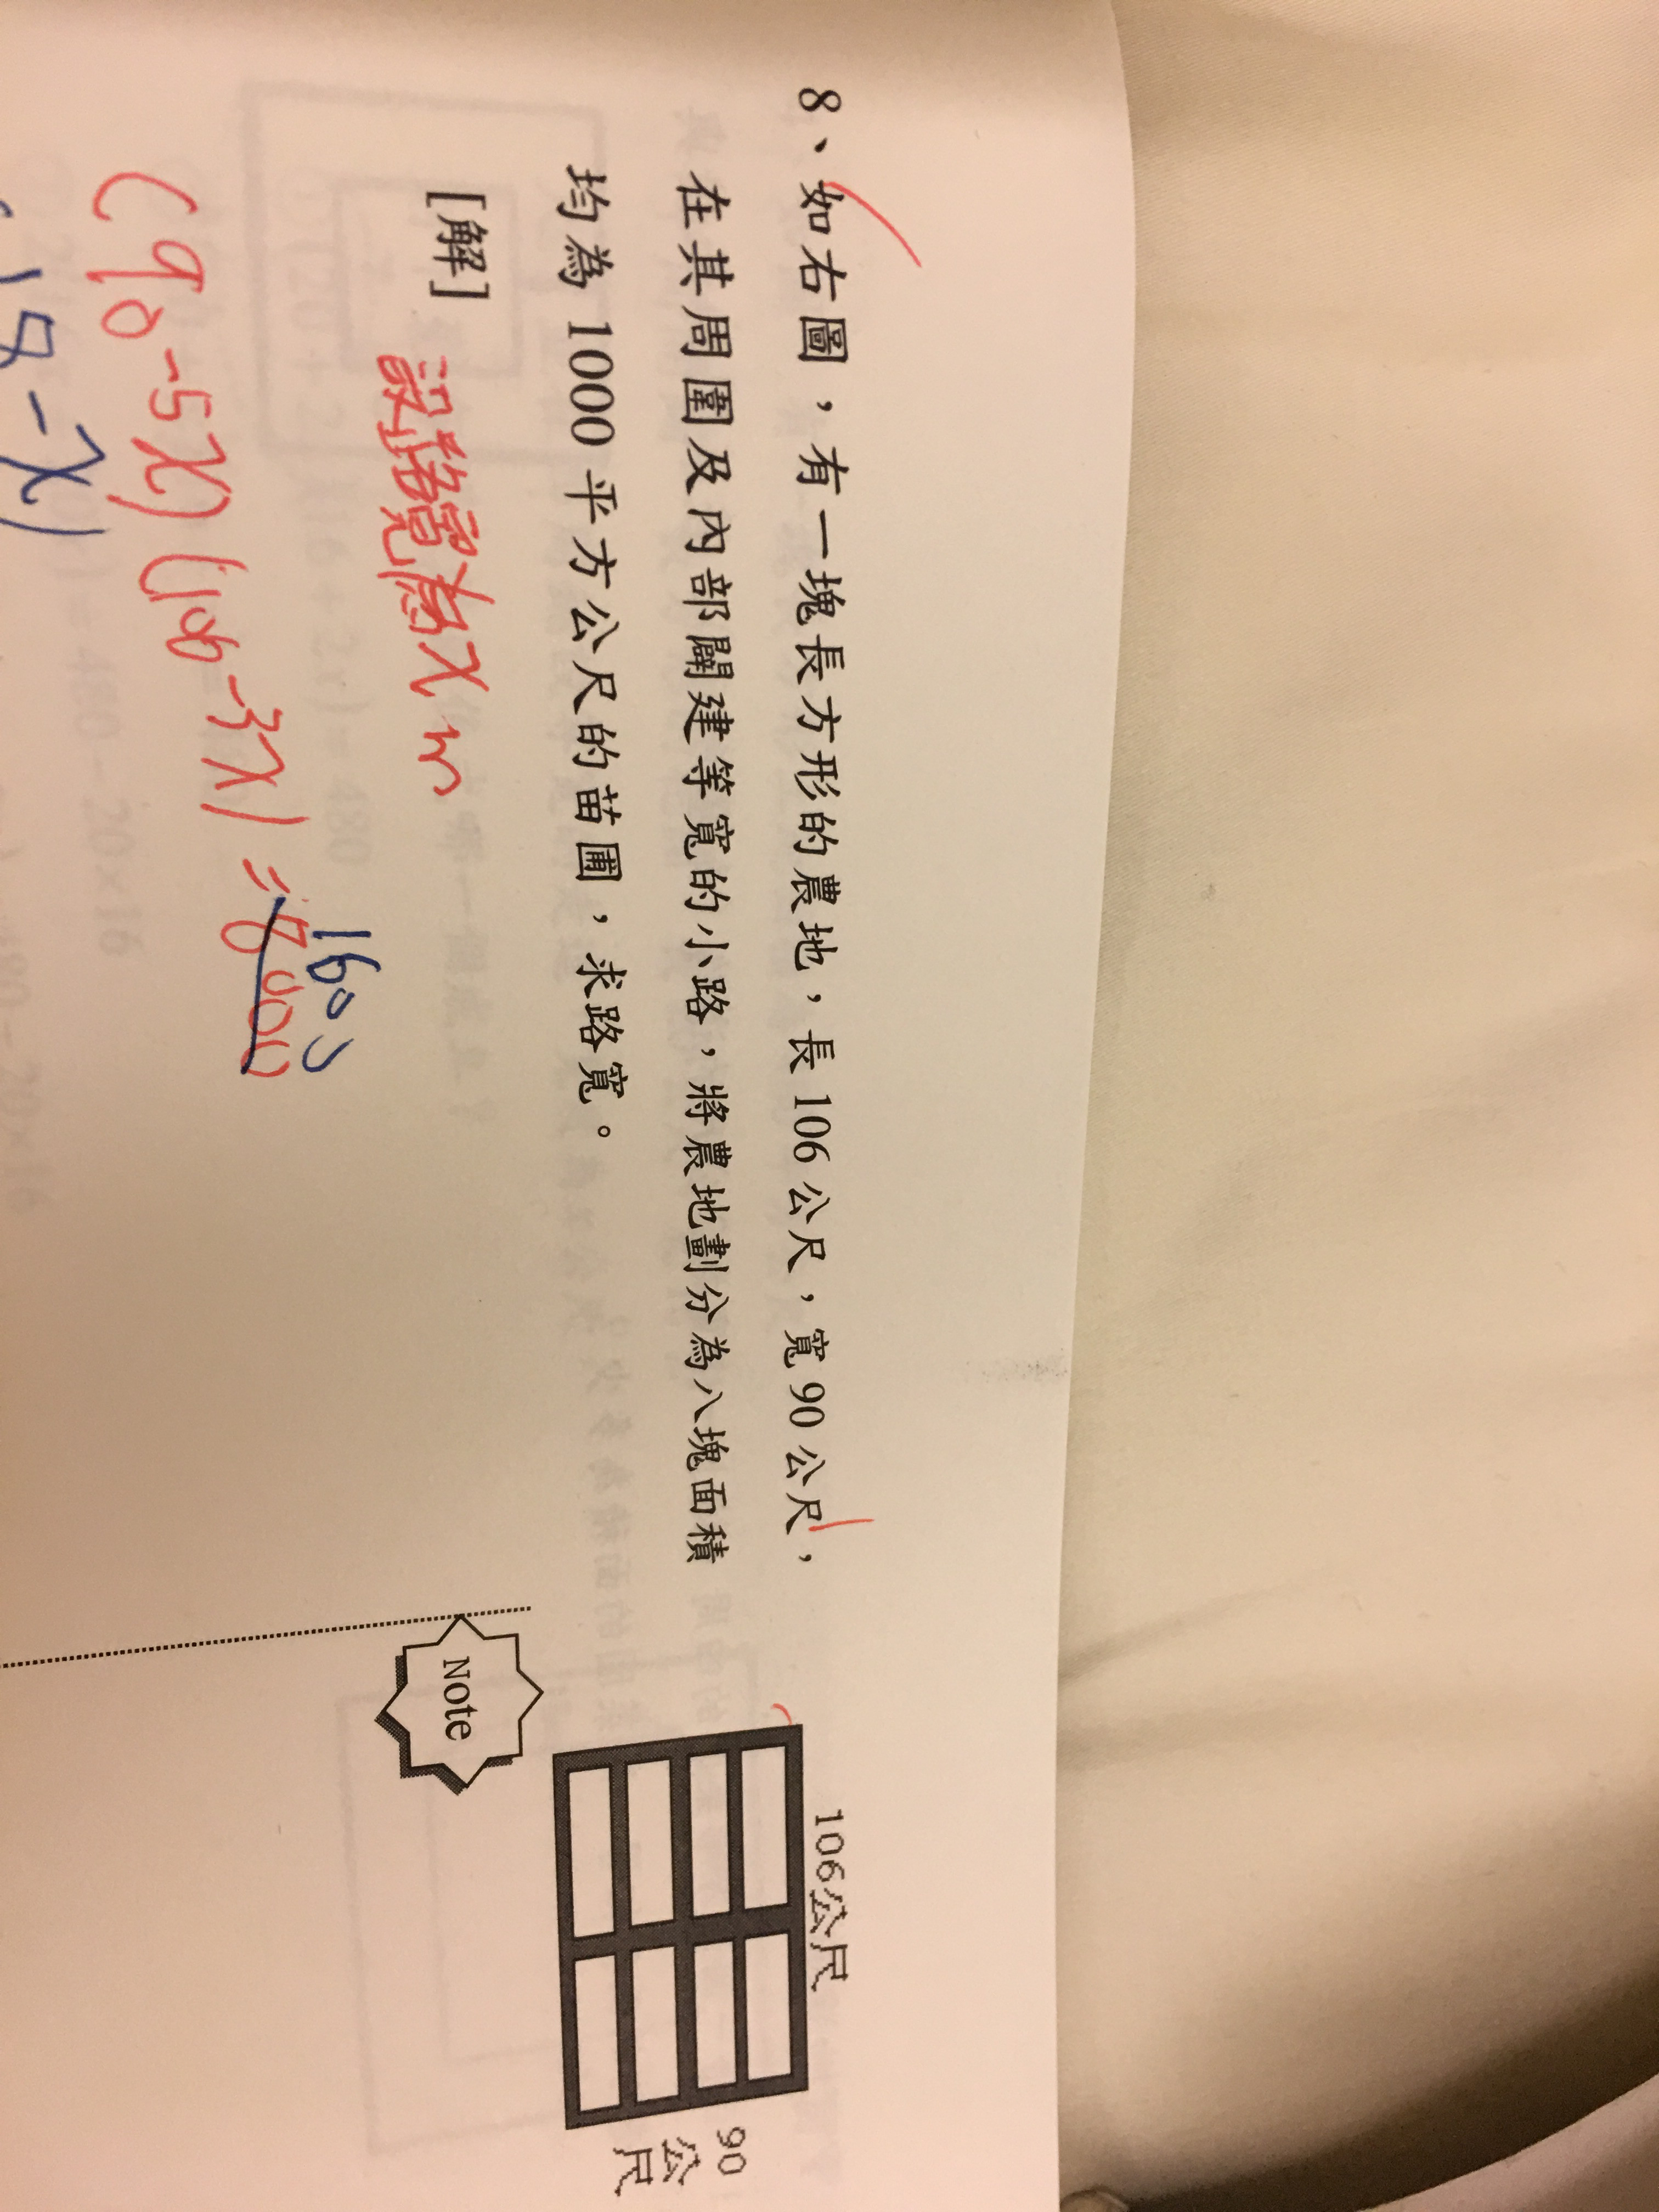 8、如右圖，有一塊長方形的農地，長 106 公尺，寬 90 公尺，
在其周圍及內部闢建等寬的小路，將農地劃分為八塊面積
均為 1000 平方公尺的苗圃，求路寬。
106公尺
90
公
尺
[解]
設路寬為x m
1600
(90-5x)(106-3x)=8000
18-x)
Note